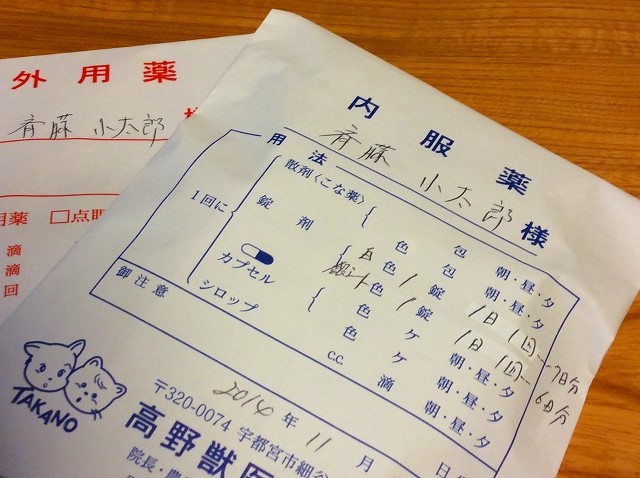 外用薬
斉藤 小太郎
用薬 □点眼
滴
滴
回
内服薬
斉藤 小太郎 様
用法
1回に
散剤〈こな薬〉 色 包 朝・昼・夕
色 包 朝・昼・夕
錠剤 白色 1 錠 1日1回 7日分
色 1 錠 1日1回 6日分
カプセル 色 ケ 朝・昼・夕
色 ケ 朝・昼・夕
シロップ c.c. 滴 朝・昼・夕
御注意
TAKANO
2014年11月 日
〒320-0074 宇都宮市細谷
高野獣医
院長・農